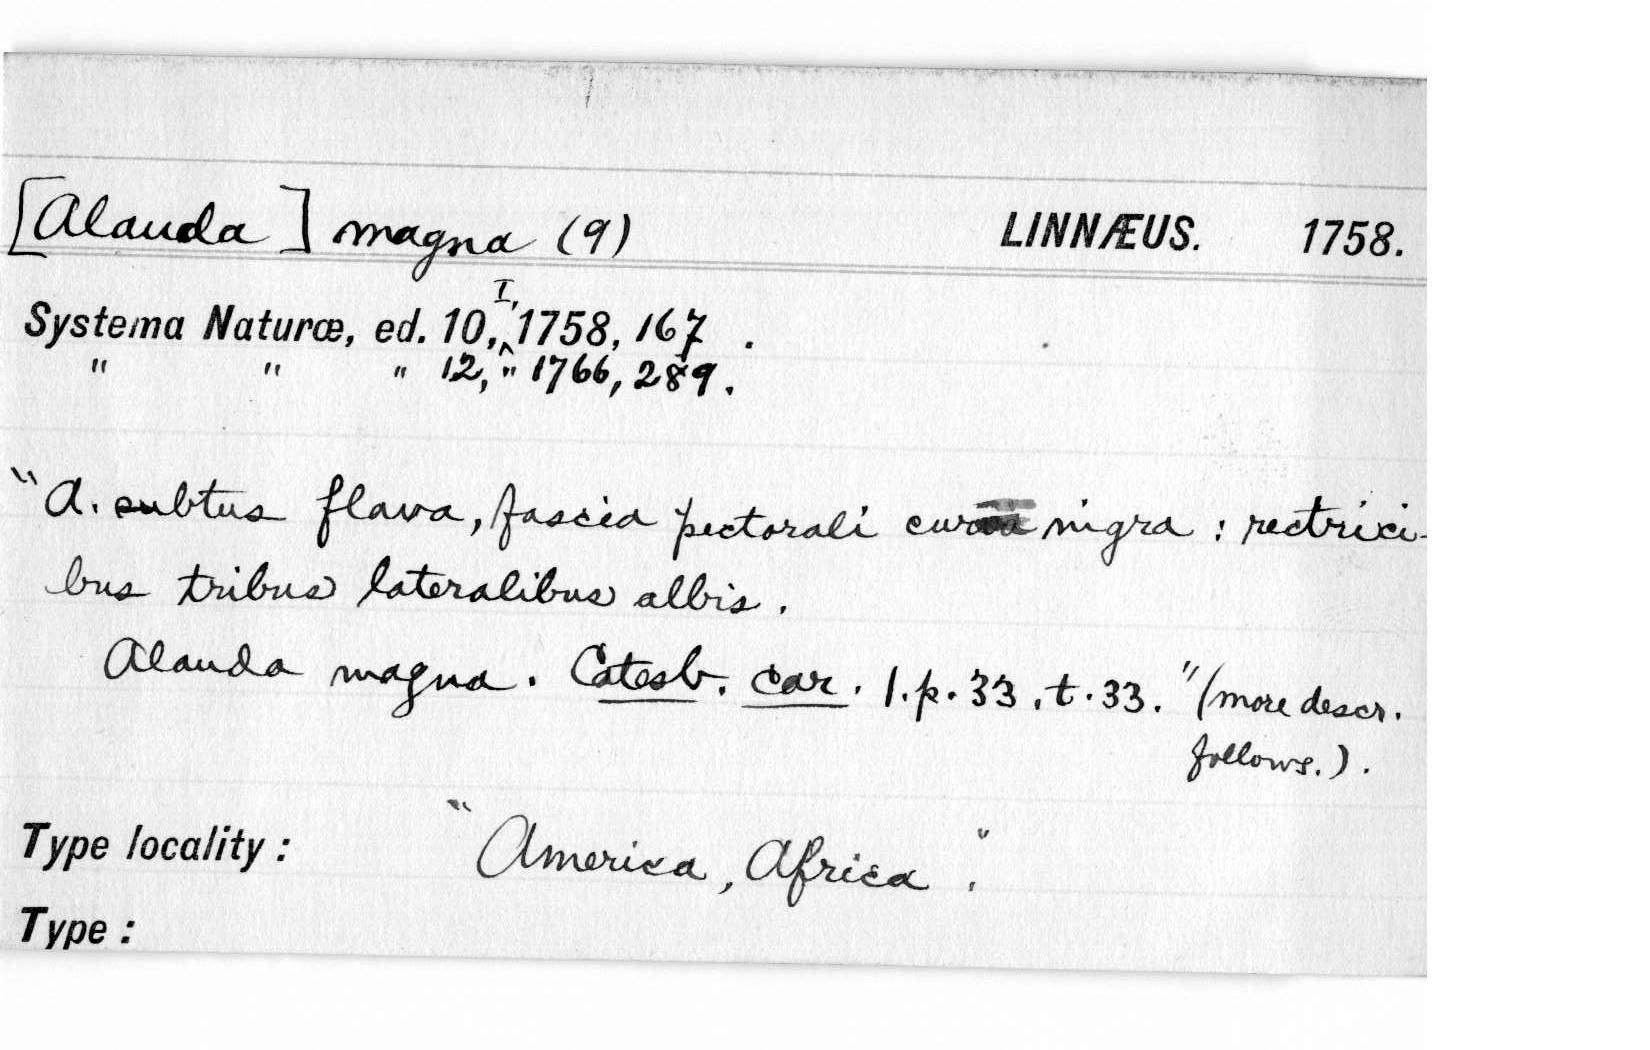 [Alauda] magna (9) LINNÆUS. 1758.
Systema Naturæ, ed. 10, I, 1758, 167.
" " " 12, " 1766, 289.
"A. subtus flava, fascia pectorali curva nigra : rectrici-
bus tribus lateralibus albis.
Alauda magna. Catesb. car. 1. p. 33. t. 33." (more descr.
follows.).
Type locality: "America, Africa".
Type: